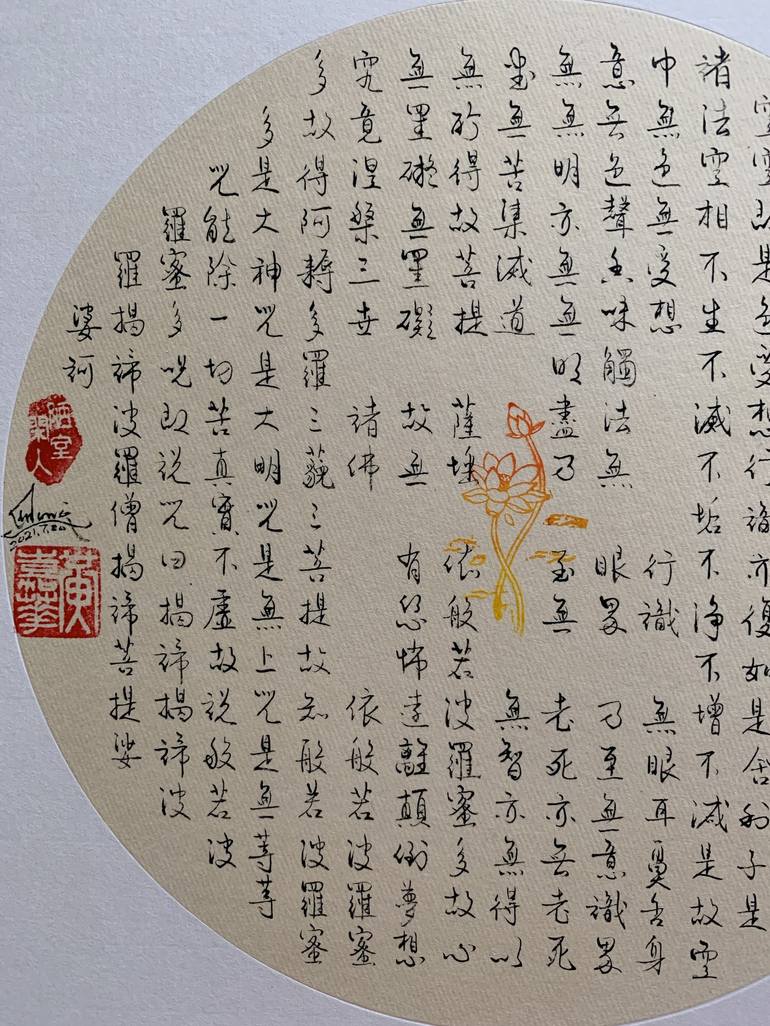 空空即是色受想行識亦復如是舍利子是
諸法空相不生不滅不垢不淨不增不減是故空
中無色無受想行識無眼耳鼻舌身
意無色聲香味觸法無眼界乃至無意識界
無無明亦無無明盡乃至無老死亦無老死
盡無苦集滅道無智亦無得以
無所得故菩提薩埵依般若波羅蜜多故心
無罣礙無罣礙故無有恐怖遠離顛倒夢想
究竟涅槃三世諸佛依般若波羅蜜
多故得阿耨多羅三藐三菩提故知般若波羅蜜
多是大神咒是大明咒是無上咒是無等等
咒能除一切苦真實不虛故說般若波
羅蜜多咒即說咒曰揭諦揭諦波
羅揭諦波羅僧揭諦菩提娑
婆訶
黃嘉華